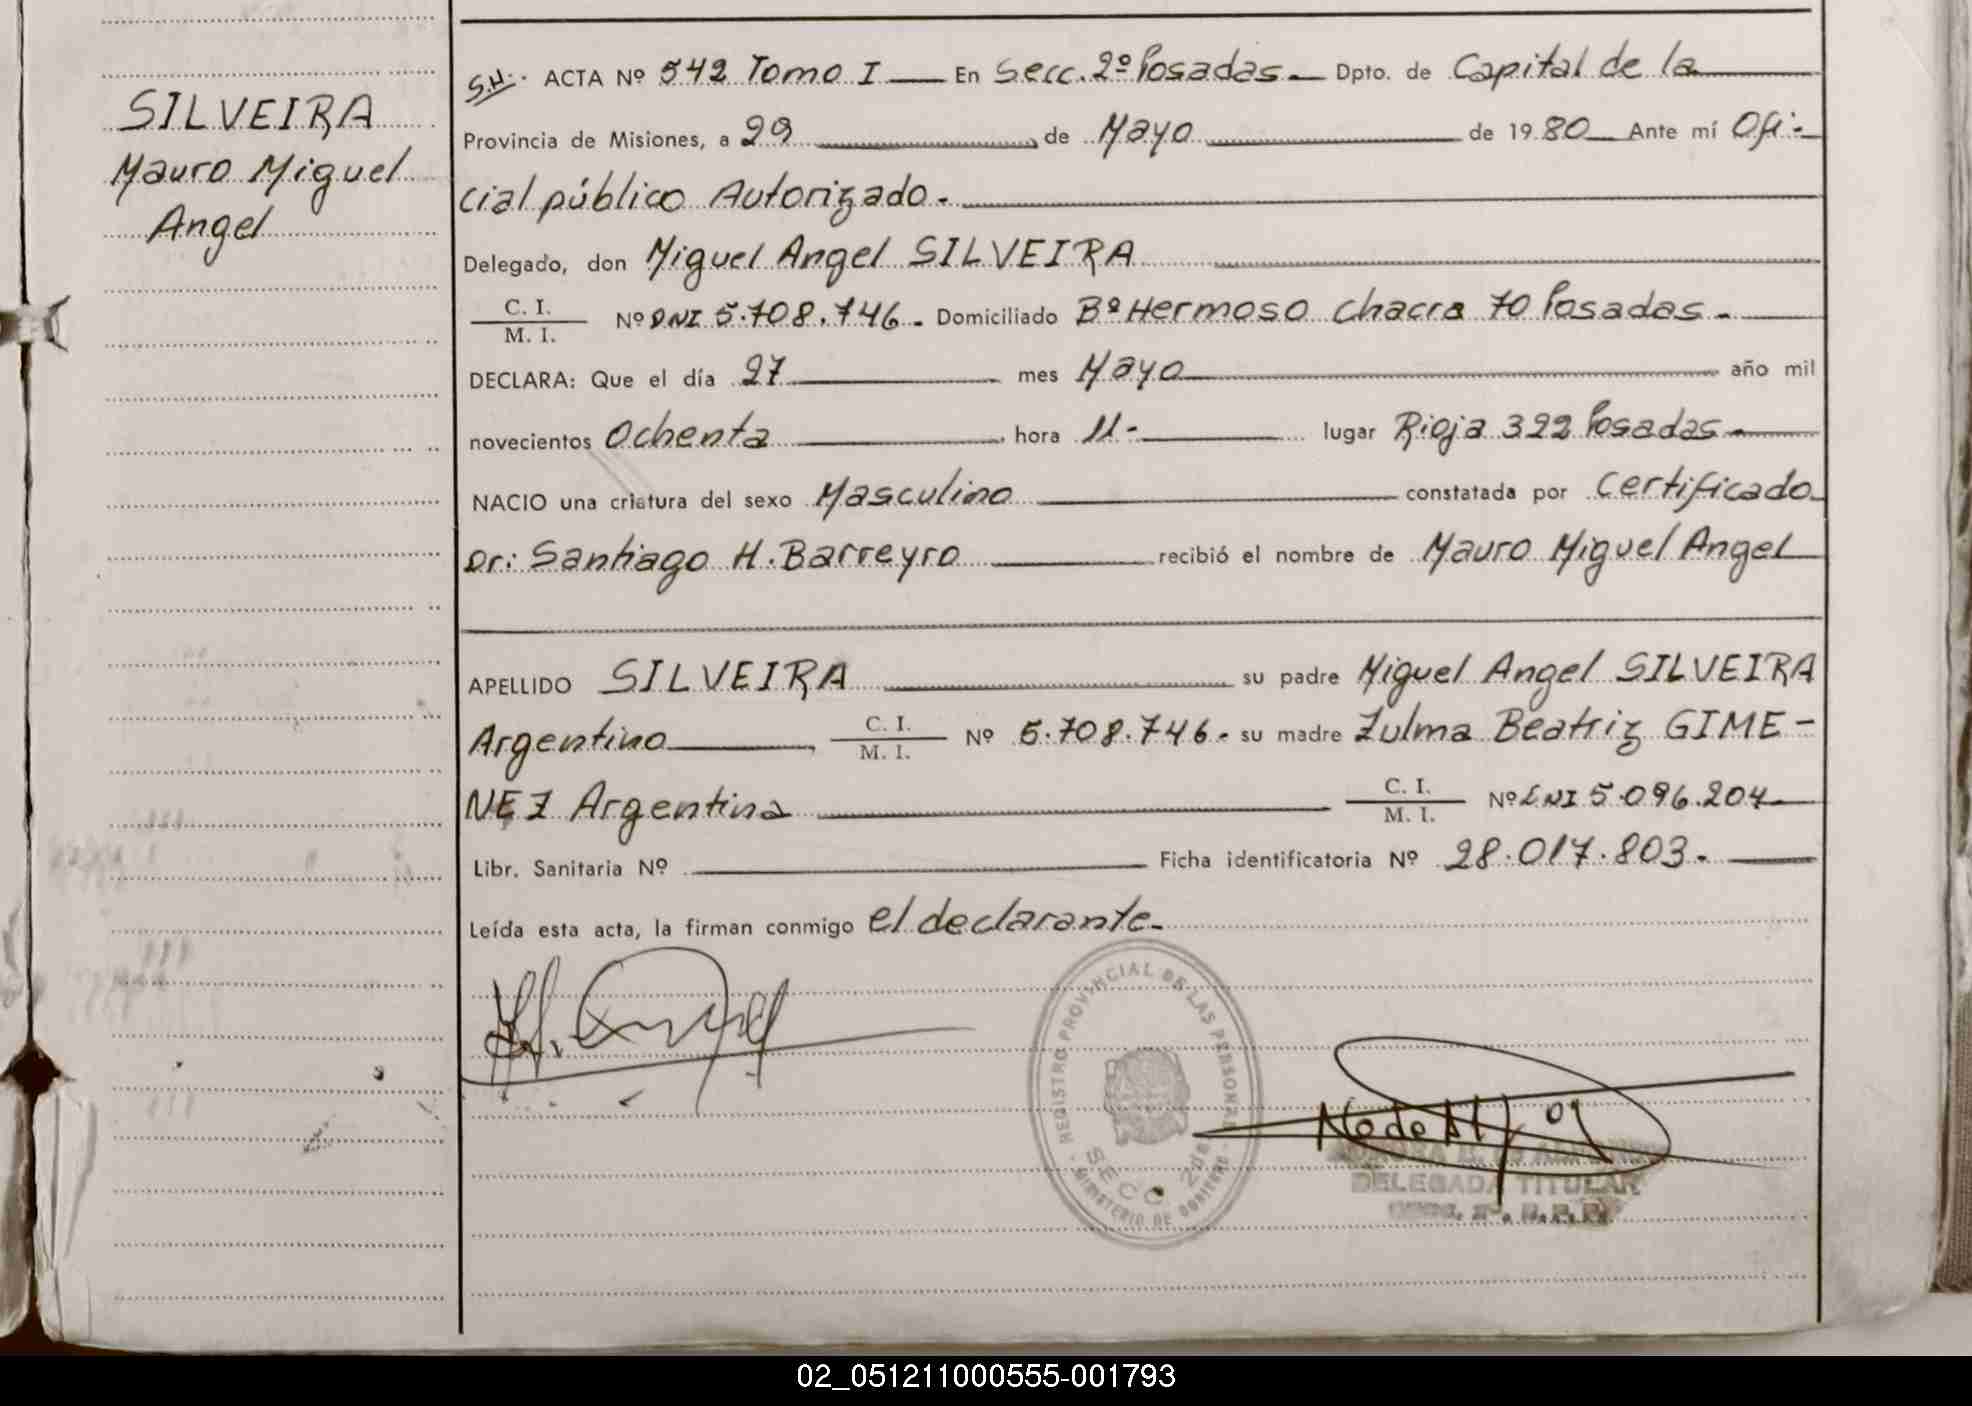 SILVEIRA
Mauro Miguel
Angel
S.H. ACTA Nº 542 Tomo I En Secc. 2º Posadas Dpto. de Capital de la
Provincia de Misiones, a 29 de Mayo de 1980 Ante mí Ofi-
cial público Autorizado.
Delegado, don Miguel Angel SILVEIRA
C. I.
M. I. Nº DNI 5.708.746. Domiciliado Bº Hermoso Chacra 70 Posadas
DECLARA: Que el día 27 mes Mayo año mil
novecientos Ochenta hora 11- lugar Rioja 322 Posadas
NACIO una criatura del sexo Masculino constatada por Certificado
Dr: Santiago H. Barreyro recibió el nombre de Mauro Miguel Angel
APELLIDO SILVEIRA su padre Miguel Angel SILVEIRA
Argentino, C. I.
M. I. Nº 5.708.746. su madre Zulma Beatriz GIME-
NEZ Argentina C. I.
M. I. Nº DNI 5.096.204
Libr. Sanitaria Nº Ficha identificatoria Nº 28.017.803.
Leída esta acta, la firman conmigo el declarante.
REGISTRO PROVINCIAL DE LAS PERSONAS
SECC. 2da
MINISTERIO DE GOBIERNO
DELEGADA TITULAR
02_051211000555-001793